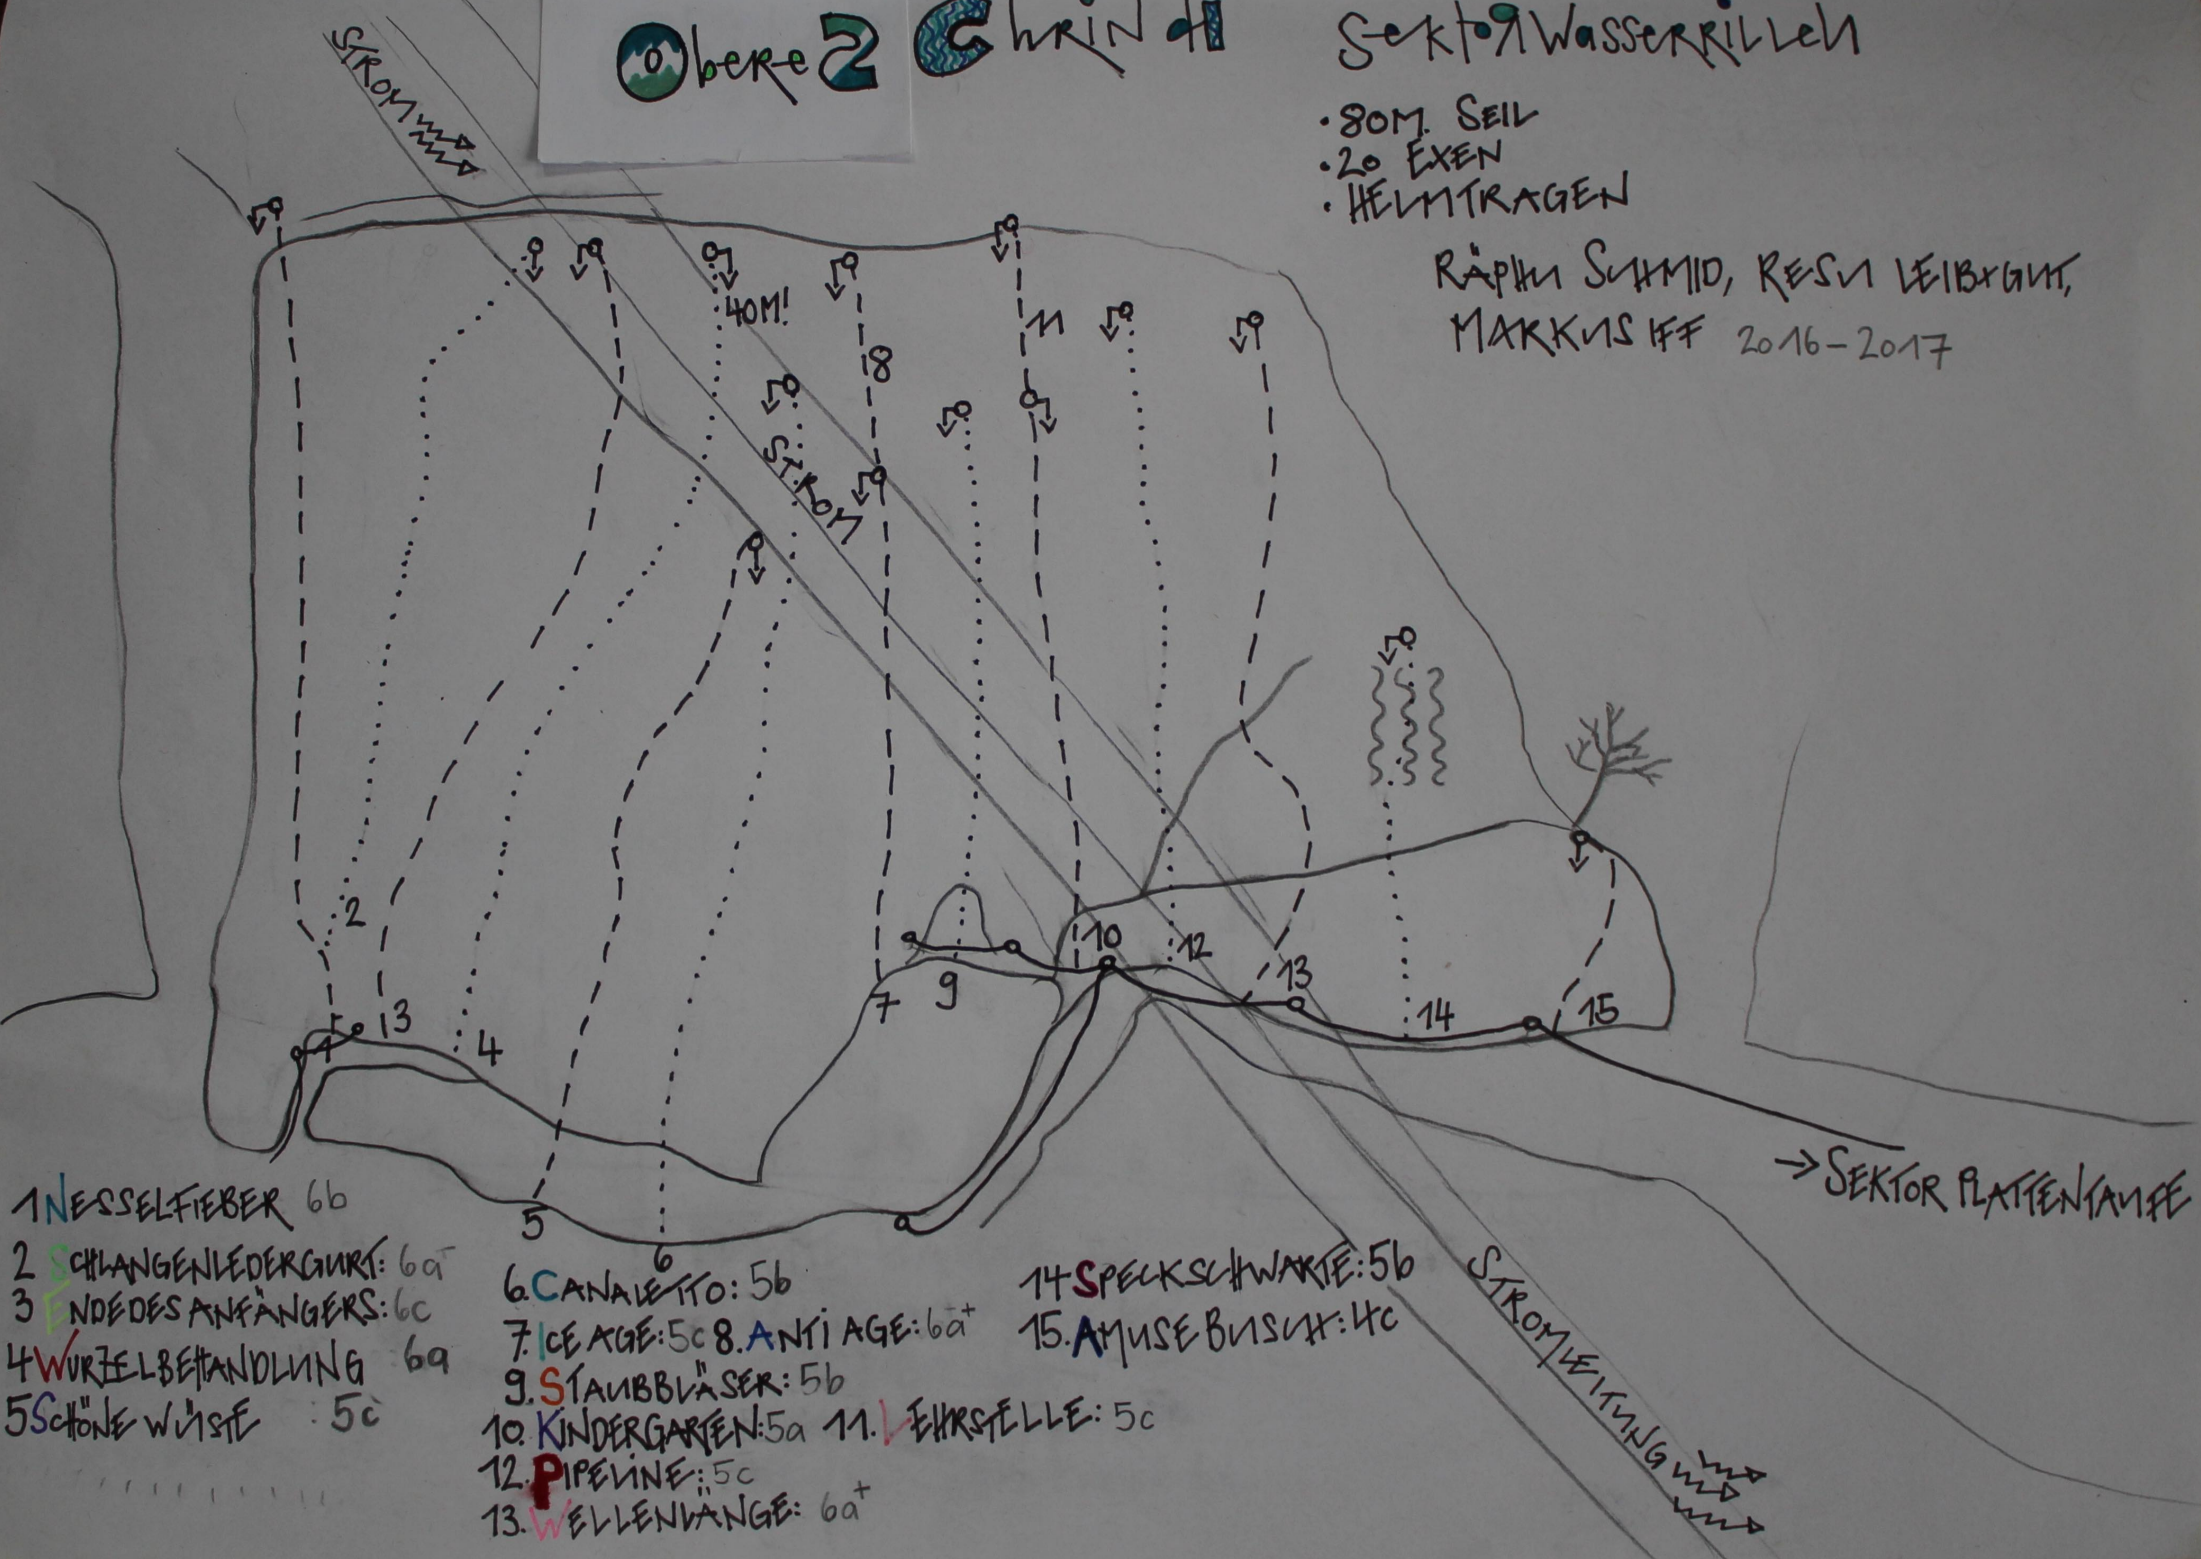 Obere 2 Chrindi
Sektor Wasserrillen
• 80M. SEIL
• 20 EXEN
• HELM TRAGEN
RÄPHU SCHMID, RESU LEIB+GUT,
MARKUS IFF 2016-2017
STROM
40M!
8
11
STROM
2
10
12
13
9
7
3
1
4
14
15
5
6
→ SEKTOR PLATTENTAUFE
STROMLEITUNG
1 NESSELFIEBER 6b
2 SCHLANGENLEDERGURT: 6a-
3 ENDE DES ANFÄNGERS: 6c
4 WURZELBEHANDLUNG 6a
5 SCHÖNE WÜSTE : 5c
6. CANALETTO: 5b
7. ICE AGE: 5c 8. ANTI AGE: 6a+
9. STAUBBLÄSER: 5b
10. KINDERGARTEN: 5a 11. LEHRSTELLE: 5c
12. PIPELINE: 5c
13. WELLENLÄNGE: 6a+
14 SPECKSCHWARTE: 5b
15. AMUSE BUSCH: 4c